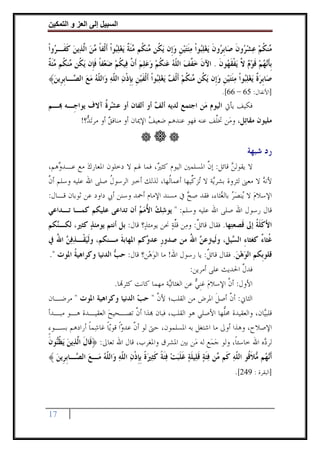 السبيل إلى العز و التمكين
مِنْكُمْ عِشْرُونَ صَابِرُونَ يَغْلِبُوا مِائَتَيْنِ وَإِنْ يَكُنْ مِنْكُمْ مِائَةٌ يَغْلِبُوا أَلْفاً مِنَ الَّذِينَ كَفَرُوا
بِأَنَّهُمْ قَوْمٌ لَا يَفْقَهُونَ . الْآنَ خَفَّفَ اللَّهُ عَنْكُمْ وَعَلِمَ أَنَّ فِيكُمْ ضَعْفاً فَإِنْ يَكُنْ مِنْكُمْ مِائَةٌ
صَابِرَةٌ يَغْلِبُوا مِائَتَيْنِ وَإِنْ يَكُنْ مِنْكُمْ أَلْفٌ يَغْلِبُوا أَلْفَيْنِ بِإِذْنِ اللَّهِ وَاللَّهُ مَعَ الصَّابِرِينَ﴾
[الأنفال: 65 – 66].
فكيف بأبي اليوم مَن اجتمع لديه ألفٌ أو ألفان أو عشرةُ آلاف يواجه بهم
مليون مقاتل، ومَن تخلَّف عنه فهو عندهم ضعيفُ الإيمان أو منافقٌ أو مرتدٌّ؟!
رد شبهة
لا يقولنَّ قائل: إنَّ المسلمين اليوم كثيرٌ، فما لهم لا يدخلون المعاركَ مع عدوِّهم،
لأنهُ لا معنى لثروة بشريَّة لا تُزكّيها أعمالُها، لذلك أخبر الرسولُ صلى الله عليه وسلم أنَّ
الإسلامَ لا يُنصَرُ بالغُثاء، فقد صحَّ في مسند الإمام أحمد وسنن أبي داود عن ثوبان قال:
قال رسول الله صلى الله عليه وسلم: " يوشكُ الأُممُ أن تداعى عليكم كما تداعى
الأَكَلَةُ إلى قَصعتِها. فقال قائلٌ: ومِن قلَّةٍ نحن يومئذٍ؟ قال: بل أنتم يومئذٍ كثير، لكنَّكم
غُثاءٌ كغثاء السَّيل، ولَينزِعنَّ اللهُ من صدور عدوِّكم المهابةَ منكم، ولَيقذِفنَّ اللهُ في
قلوبكم الوَهَن. فقال قائل: يا رسول الله! ما الوَهْن؟ قال: حبُّ الدنيا وكراهيةُ الموت ".
فدلَّ الحديث على أمرين:
الأول: أنَّ الإسلامَ غنيٌّ عن الغثائيَّة مهما كانت كثرتها.
الثاني: أنَّ أصلَ المرض من القلب، لأنَّ " حبَّ الدنيا وكراهيةَ الموت " مرضان
قلبيَّان، والعقيدةُ محلُّها الأصلي هو القلب، فبان بهذا أنَّ تصحيحَ العقيدة هو مبدأ
الإصلاح، وهذا أولى ما اشتغل به المسلمون، حتى لو أنَّ عدوًّا قويًّا غاشماً أرادهم بسوءٍ
لردَّه الله خاسئاً، ولو جَمَع له مَن بين المشرق والمغرب، قال الله تعالى: ﴿قَالَ الَّذِينَ يَظُنُّونَ
أَنَّهُم مُلَاقُو اللَّهِ كَم مِّن فِئَةٍ قَلِيلَةٍ غَلَبَتْ فِئَةً كَثِيرَةً بِإِذْنِ اللَّهِ وَاللَّهُ مَعَ الصَّابِرِينَ ﴾
[البقرة : 249].
17